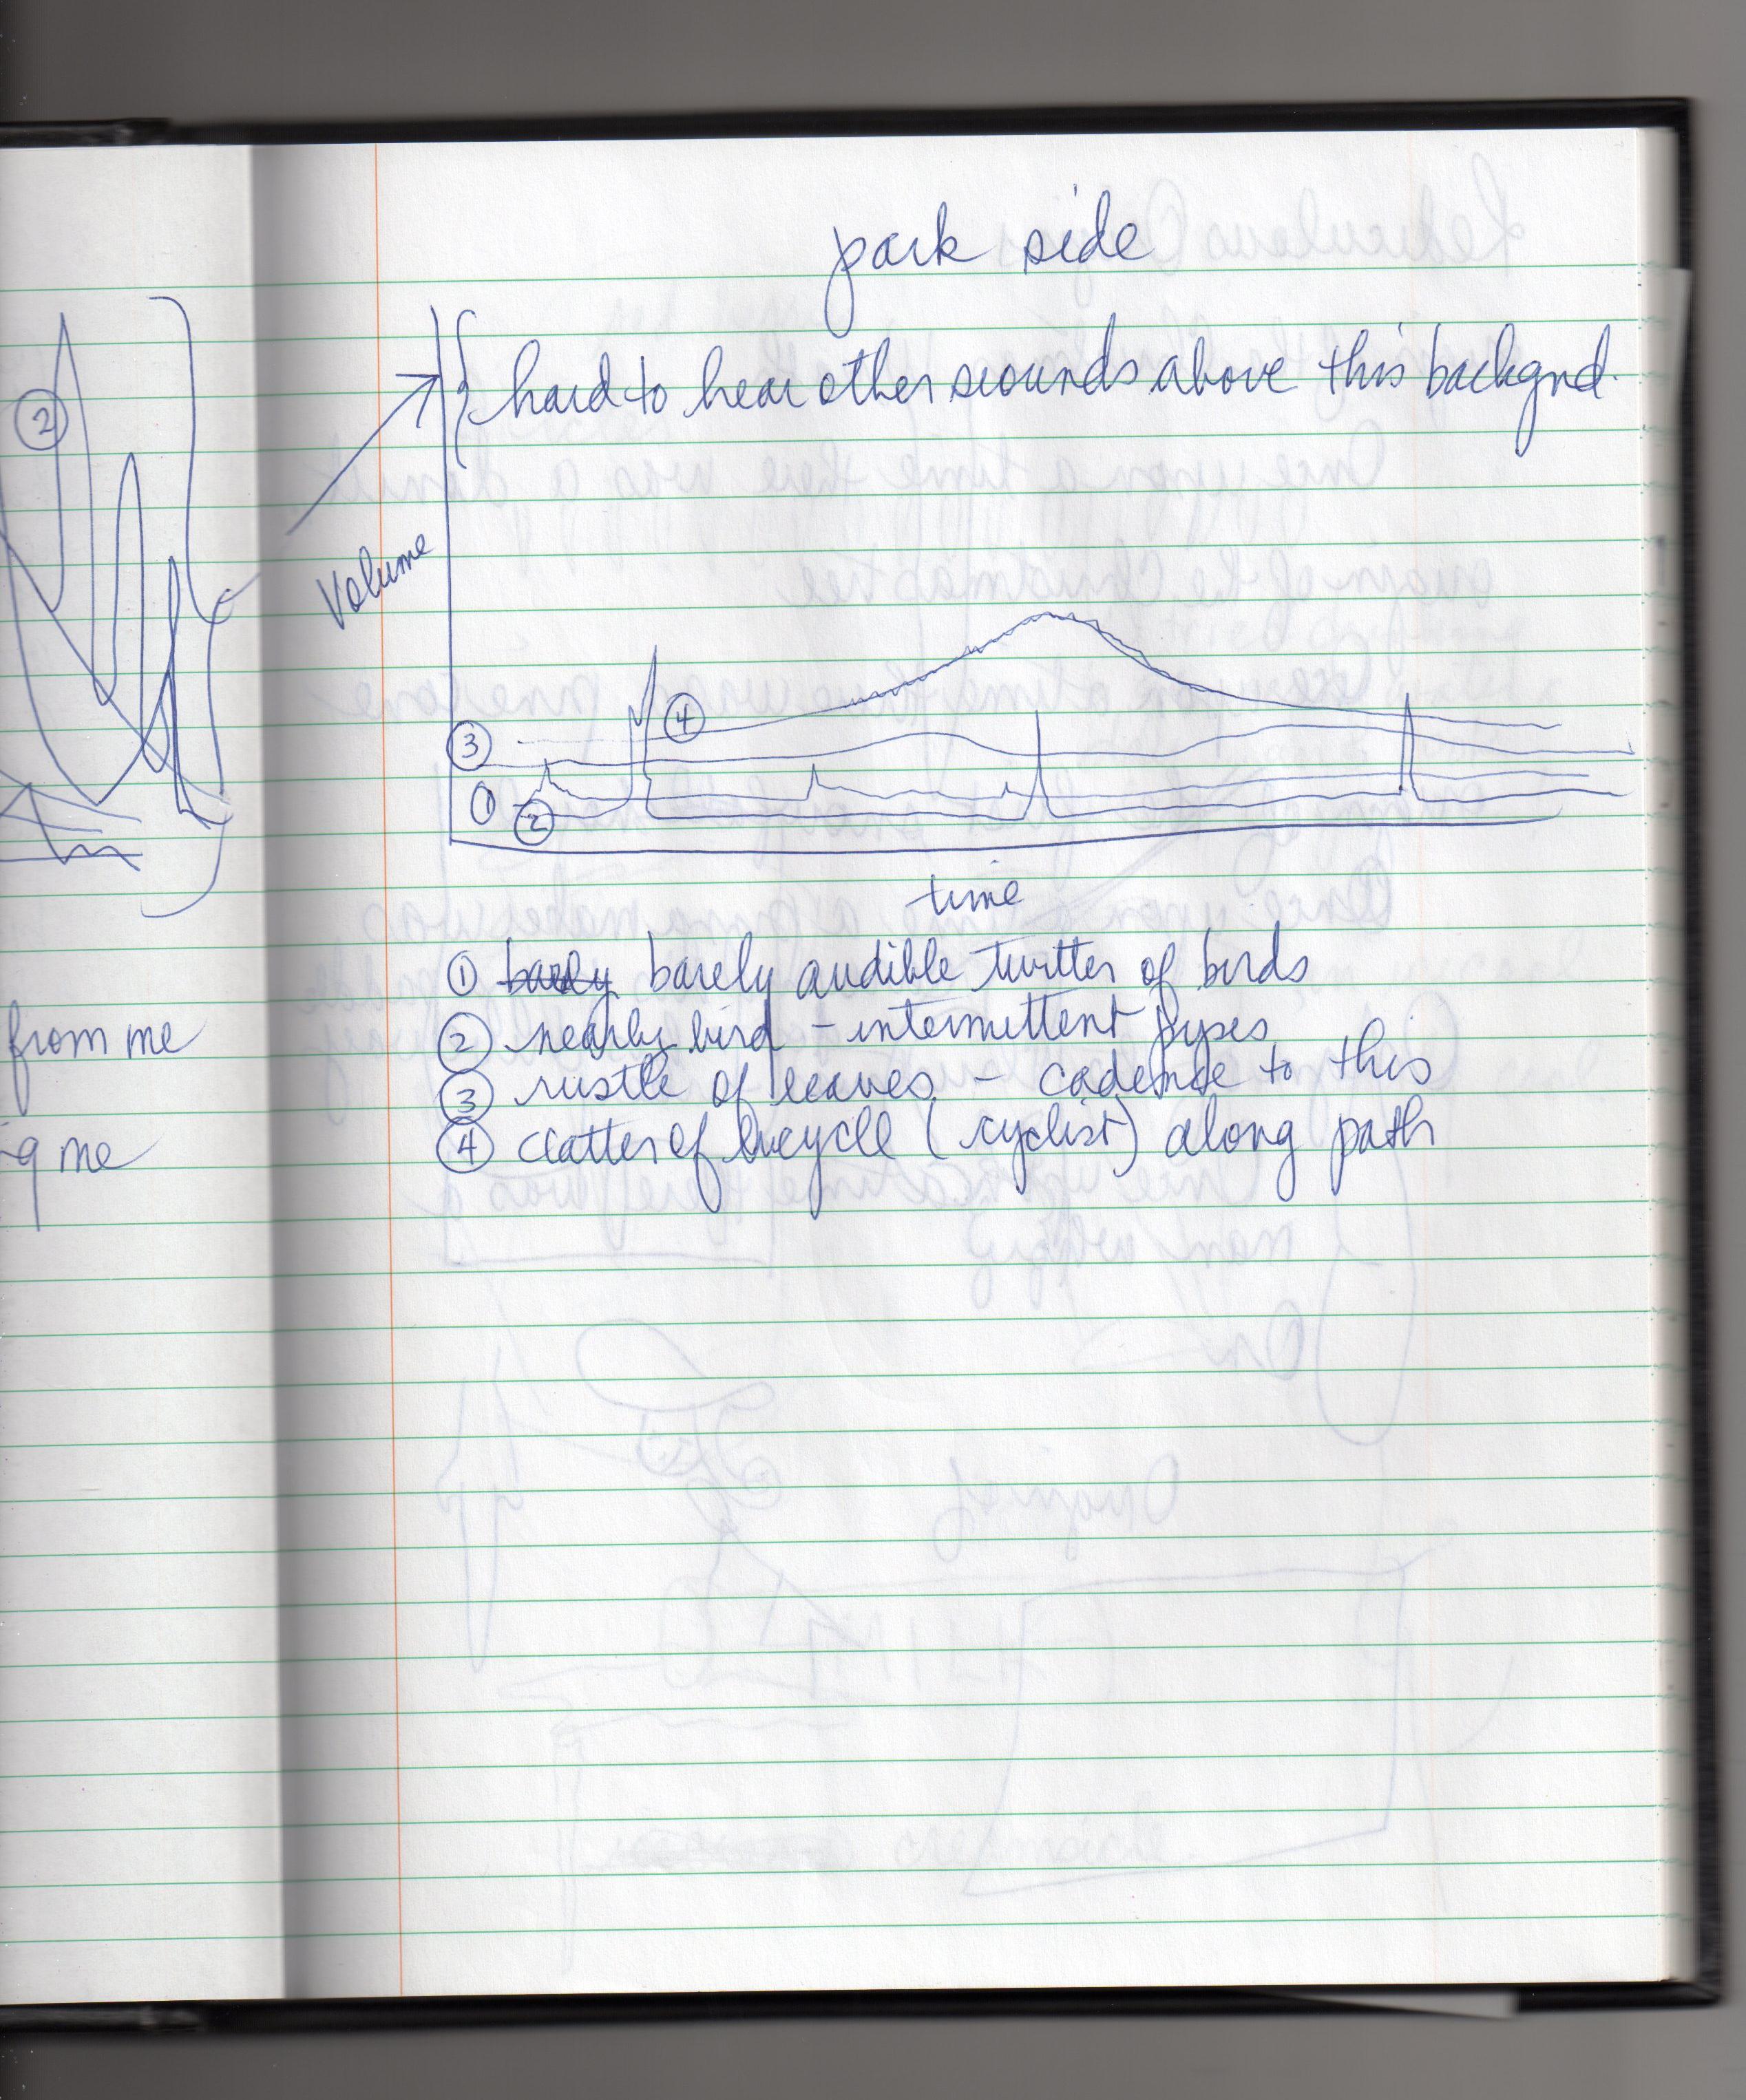 park side
②
hard to hear other sounds above this backgnd.
Volume
④
③
①
②
time
① barely barely audible twitter of birds
from me
② nearby bird - intermittent
③ rustle of leaves - cadence to this
④ clatter of bicycle (cyclist) along path
g me